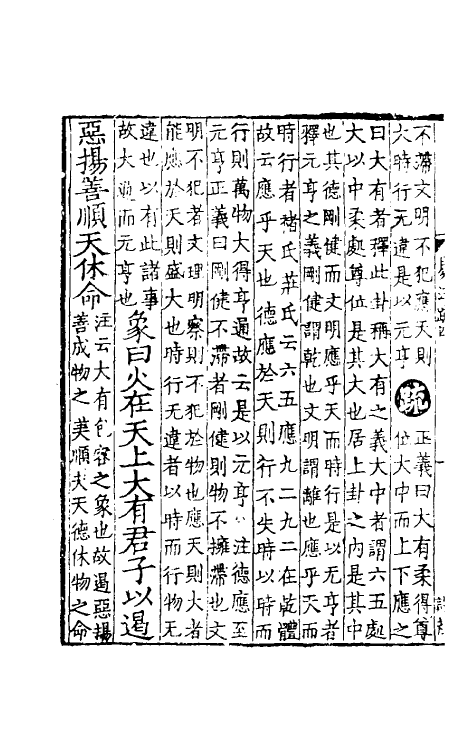 不滯文明不犯應天則
大時行无違是以元亨
疏
正義曰大有柔得尊
位大中而上下應之
曰大有者釋此卦稱大有之義大中者謂六五處
大以中柔處尊位是其大也居上卦之內是其中
也其德剛健而文明應乎天而時行是以元亨者
釋元亨之義剛健謂乾也文明謂離也應乎天而
時行者褚氏莊氏云六五應九二九二在乾體
故云應乎天也德應於天則行不失時以時而
行則萬物大得亨通故云是以元亨 注德應至
元亨正義曰剛健不滯者剛健則物不擁滯也文
明不犯者文理明察則不犯於物也應天則大者
能應於天則盛大也時行无違者以時而行物无
違也以有此諸事
故大通而元亨也
象曰火在天上大有君子以遏
惡揚善順天休命
注云大有包容之象也故遏惡揚
善成物之美順夫天德休物之命